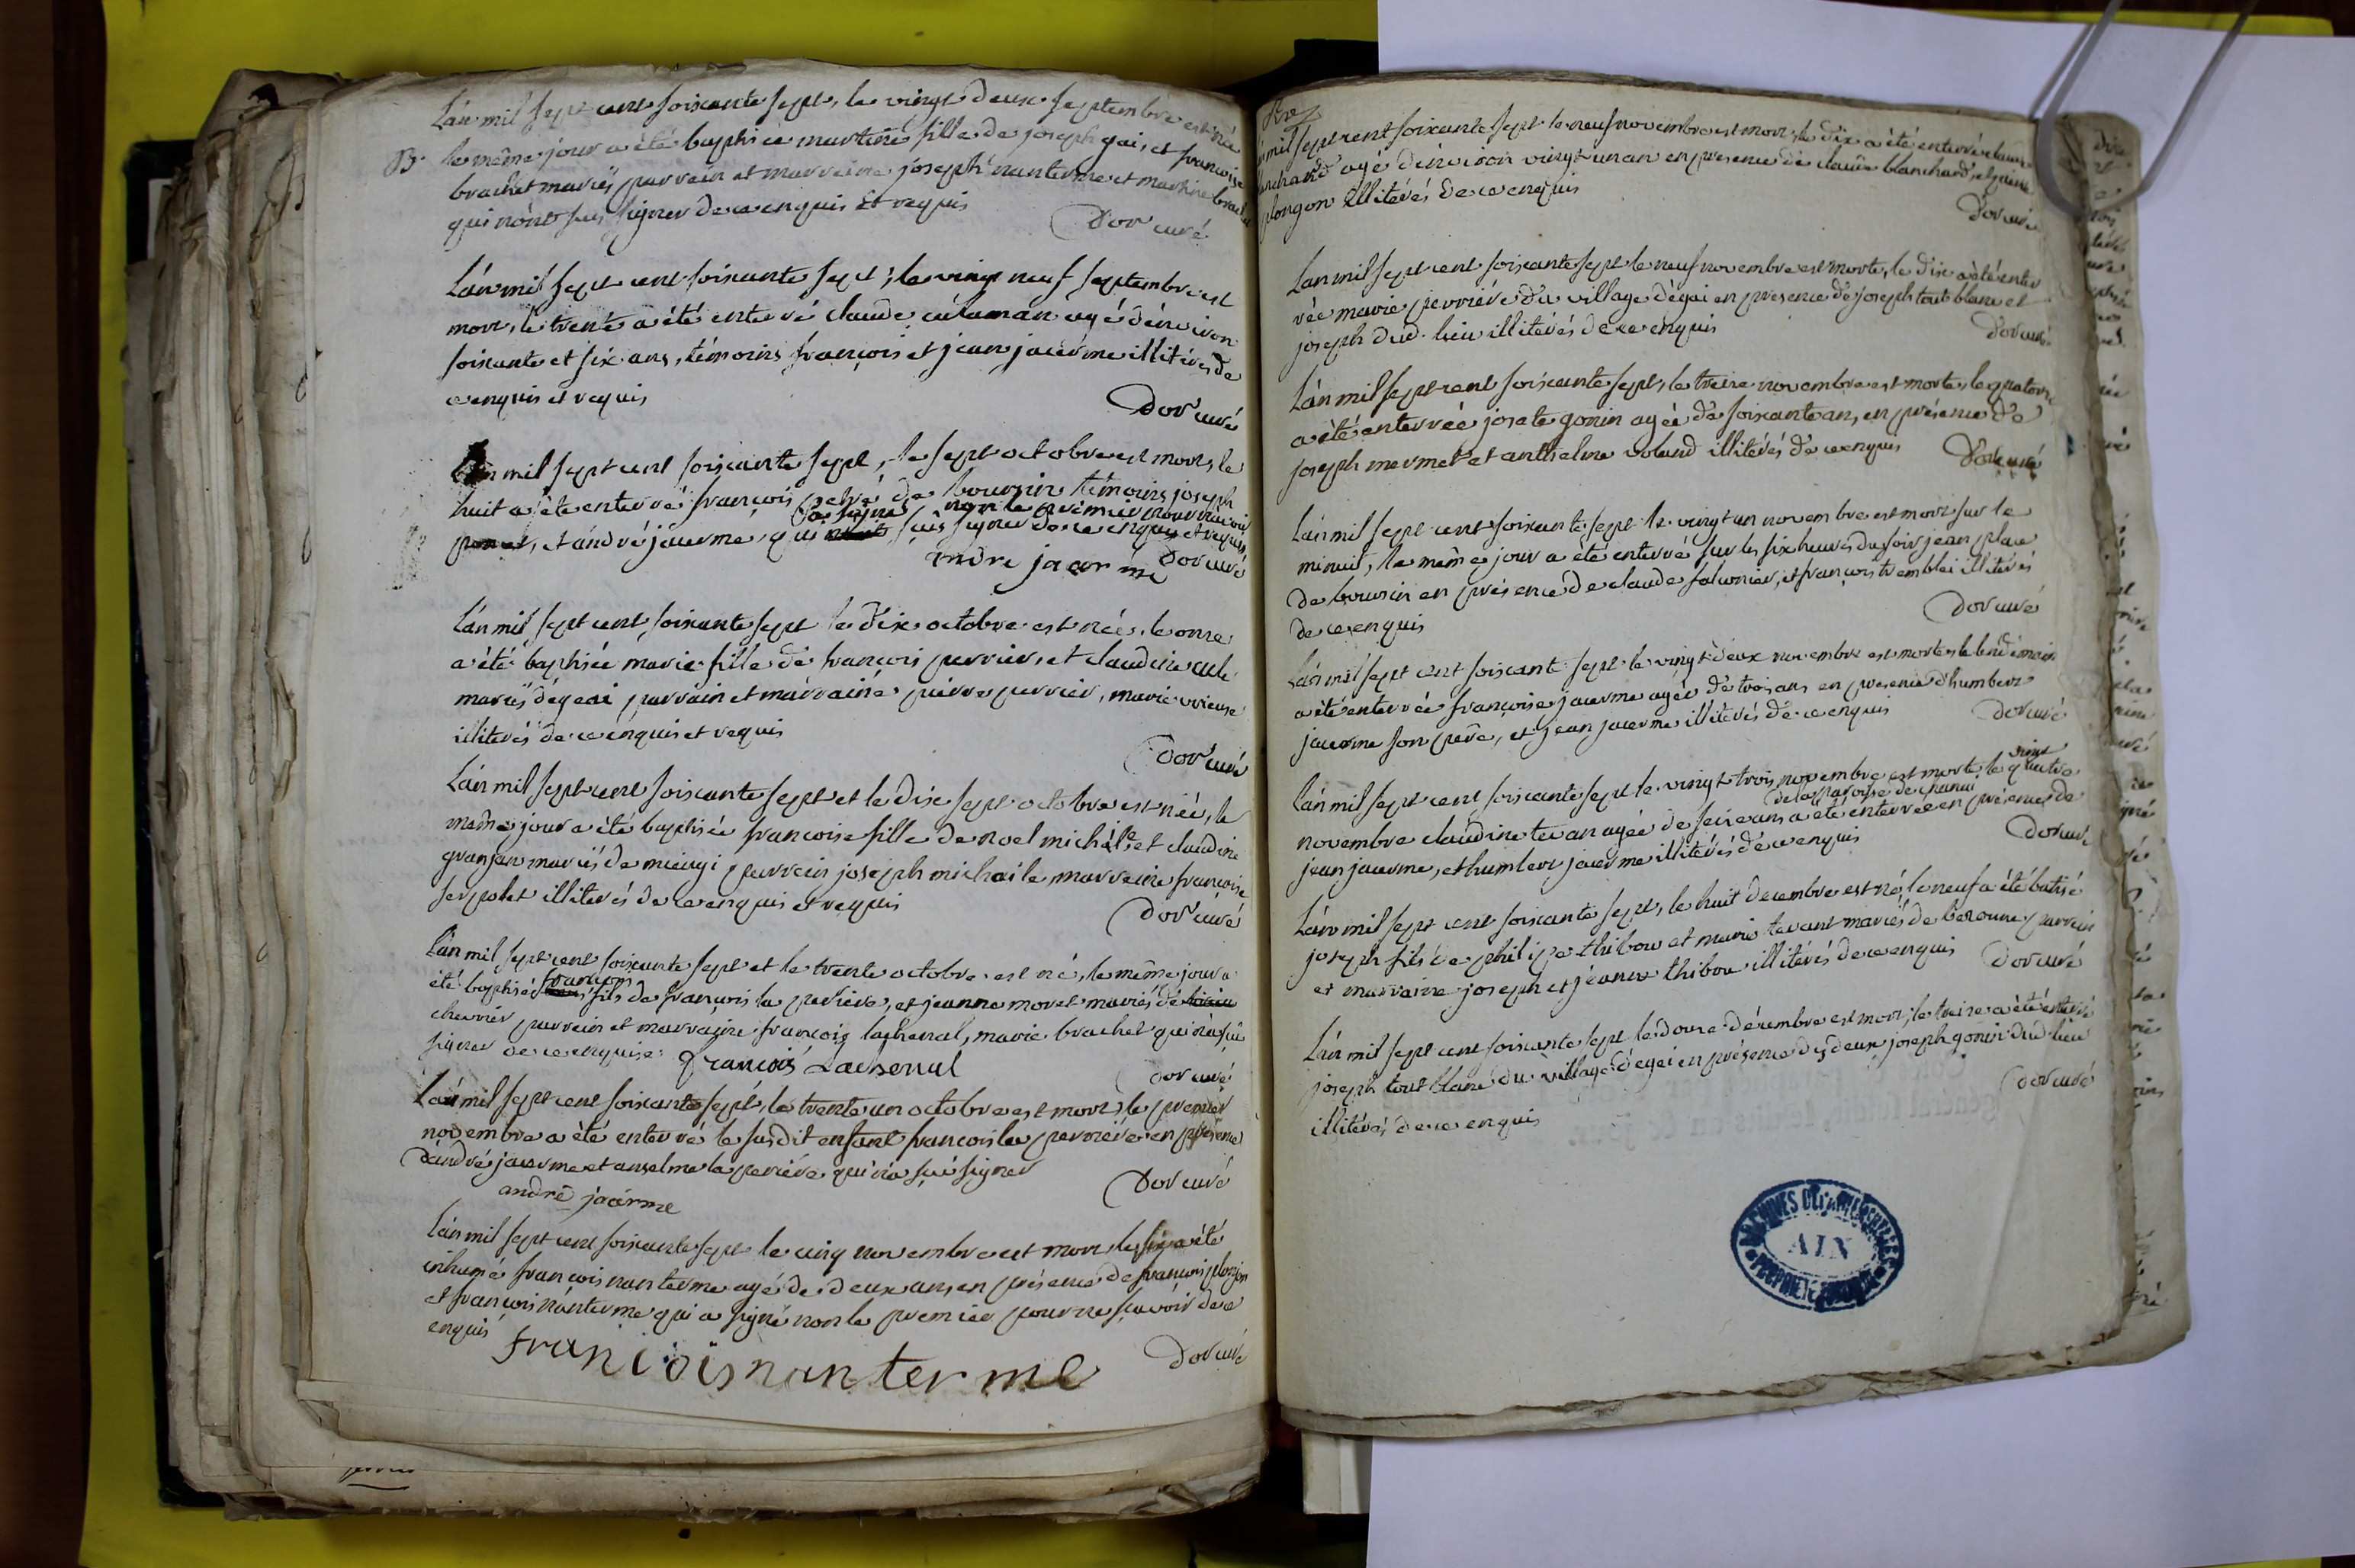 L'an mil sept cent soixante sept, le vingt deux septembre est née
B. le même jour a été baptisée martine fille de joseph gai, et francoise
brachet mariés parrain et marraine joseph nanterme et martine brachet
qui n'ont sus signer de ce enquis et requis
Dor curé
L'an mil sept cent soixante sept, le vingt neuf septembre est
mort, le trente a été enterré claude agé d'environ
soixante et six ans, témoins françois et jean jacerme illiterés de
ce enquis et requis
Dor curé
L'an mil sept cent soixante sept, le sept octobre est mort, le
huit a été enterré françois de boursin témoins joseph
a signé non le premier pour
et andré jacerme, qui sus signer de ce enquis et requis
andre jacerme Dor curé
L'an mil sept cent soixante sept le dix octobre est née, le onze
a été baptisée marie fille de françois perrier, et claudine
mariés d'egeai parrain et marraine pierre perrier, marie
illiterés de ce enquis et requis
Dor curé
L'an mil sept cent soixante sept et le dix sept octobre est née, le
même jour a été baptisée francoise fille de noel michaile, et claudine
granjan mariés de parrain joseph michaile, marraine francoise
serpolet illiterés de ce enquis et requis
Dor curé
L'an mil sept cent soixante sept et le trente octobre est né, le même jour a
françois
été baptisé fils de françois la periere, et jeanne moret mariés de
parrain et marraine françois lachenal, marie brachet qui n'a sçu
signer de ce enquise
François Lachenal
Dor curé
L'an mil sept cent soixante sept, le trente un octobre est mort, le premier
novembre a été enterré le susdit enfant francois la perriere en présence
d'andré jacerme et anselme la periere qui n'a sçu signer
Dor curé
andré jacerme
L'an mil sept cent soixante sept le cinq novembre est mort, le six a été
inhumé francois nanterme agé de deux ans en présence de françois plonjon
et francois nanterme qui a signé non le premier pour ne sçavoir de ce
enquis
francois nanterme
Dor curé
mil sept cent soixante sept le neuf novembre est mort, le dix a été enterré claude
blanchard agé d'environ vingt un an en presence de claude blanchard, et
plongon illiterés de ce enquis
Dor curé
L'an mil sept cent soixante sept le neuf novembre est morte, le dix a été enter
rée marie perriére du village d'egai en presence de joseph tout blanc et
joseph dud. lieu illiterés de ce enquis
Dor curé
L'an mil sept cent soixante sept, le treize novembre est morte, le quatorze
a été enterrée josete gonin agée de soixante ans, en présence de
joseph mermet et anthelme voland illiterés de ce enquis
Dor curé
L'an mil sept cent soixante sept le vingt un novembre est mort sur le
minuit, le même jour a été enterré sur les six heures du soir jean place
de boursin en présence de claude falconier, et françois tremblai illiterés
de ce enquis
Dor curé
L'an mil sept cent soixante sept le vingt deux novembre est morte, le lendemain
a été enterrée françoise jacerme agée de trois ans en presence d'humbert
jacerme son père, et jean jacerme illiterés de ce enquis
Dor curé
L'an mil sept cent soixante sept le vingt trois novembre est morte, le vingt quatre
de la paroise de
novembre claudine agée de seize ans a été enterrée en présence de
jean jacerme, et humbert jacerme illiterés de ce enquis
Dor curé
L'an mil sept cent soixante sept, le huit decembre est né, le neuf a été batisé
joseph fils de philipe thibou et marie tevant mariés de parrain
et marraine joseph et jeanne thibou illiterés de ce enquis
Dor curé
L'an mil sept cent soixante sept le douze décembre est mort, le treize a été enterré
joseph tout blanc du village d'egei en présence des deux joseph gonin dud. lieu
illiterés de ce enquis
Dor curé
ARCHIVES DEPARTEMENTALES
AIN
PROPRIÉTÉ PUBLIQUE